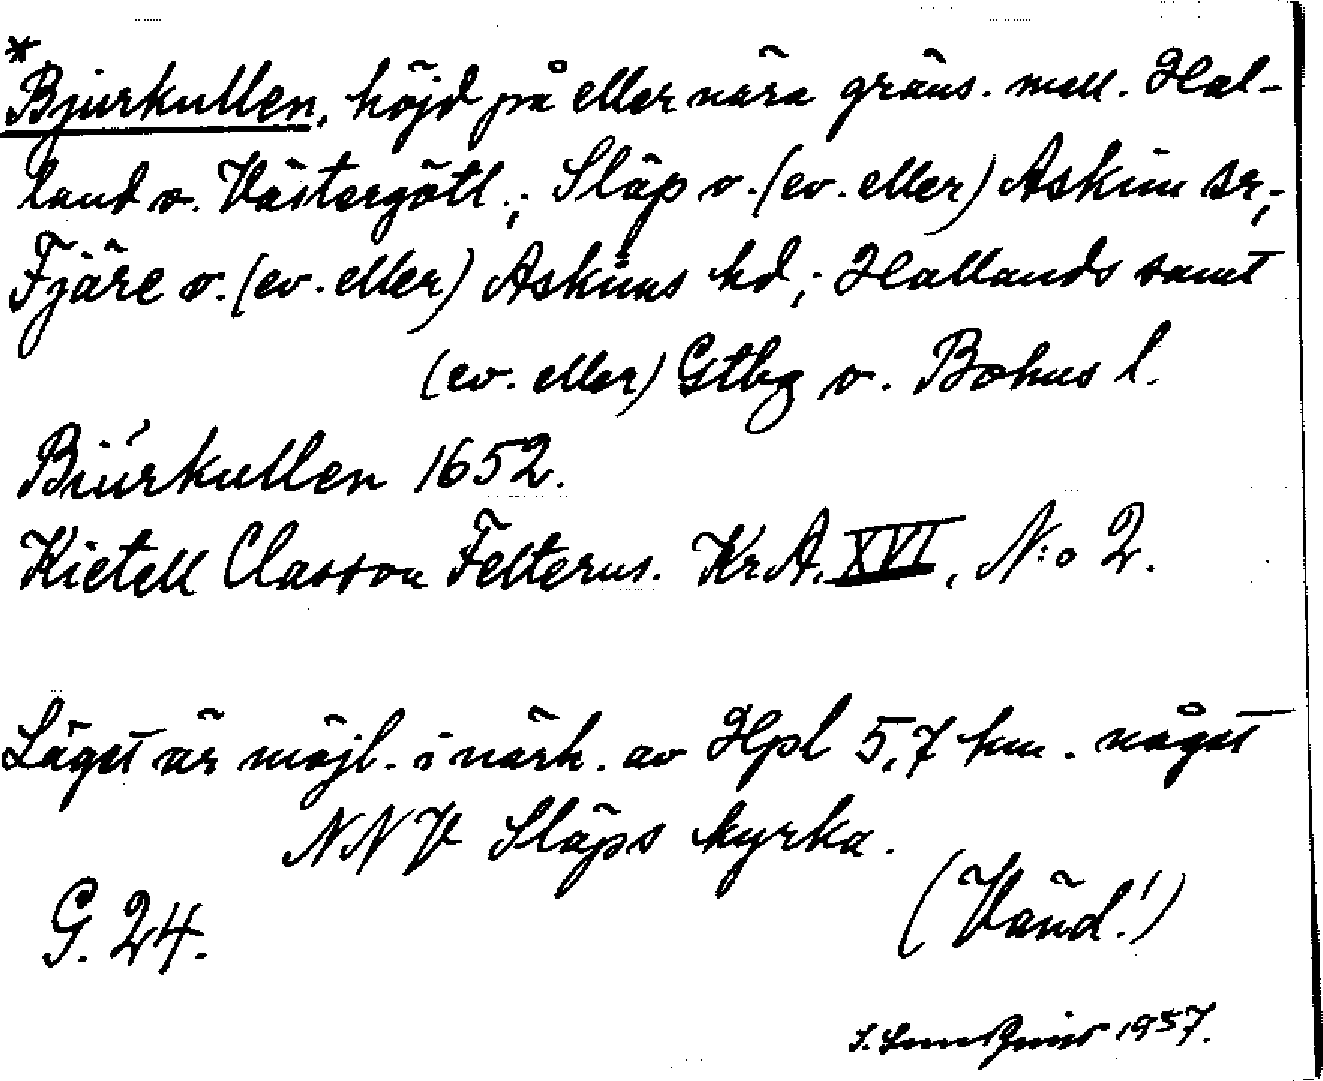 *Bjurkullen, höjd på eller nära gräns. mell. Hal-
land o. Västergötl.; Släp o. (ev. eller) Askim sr;
Fjäre o. (ev. eller) Askims hd; Hallands samt
(ev. eller) Gtbg o. Bohus l.
Biúrkullen 1652.
Kietell Classon Felterus. Kr.A. XVI, N:o 2.
Läget är möjl. i närh. av Hpl 5,7 km. något
NNV Släps kyrka.
(Vänd!)
G. 24.
1957.